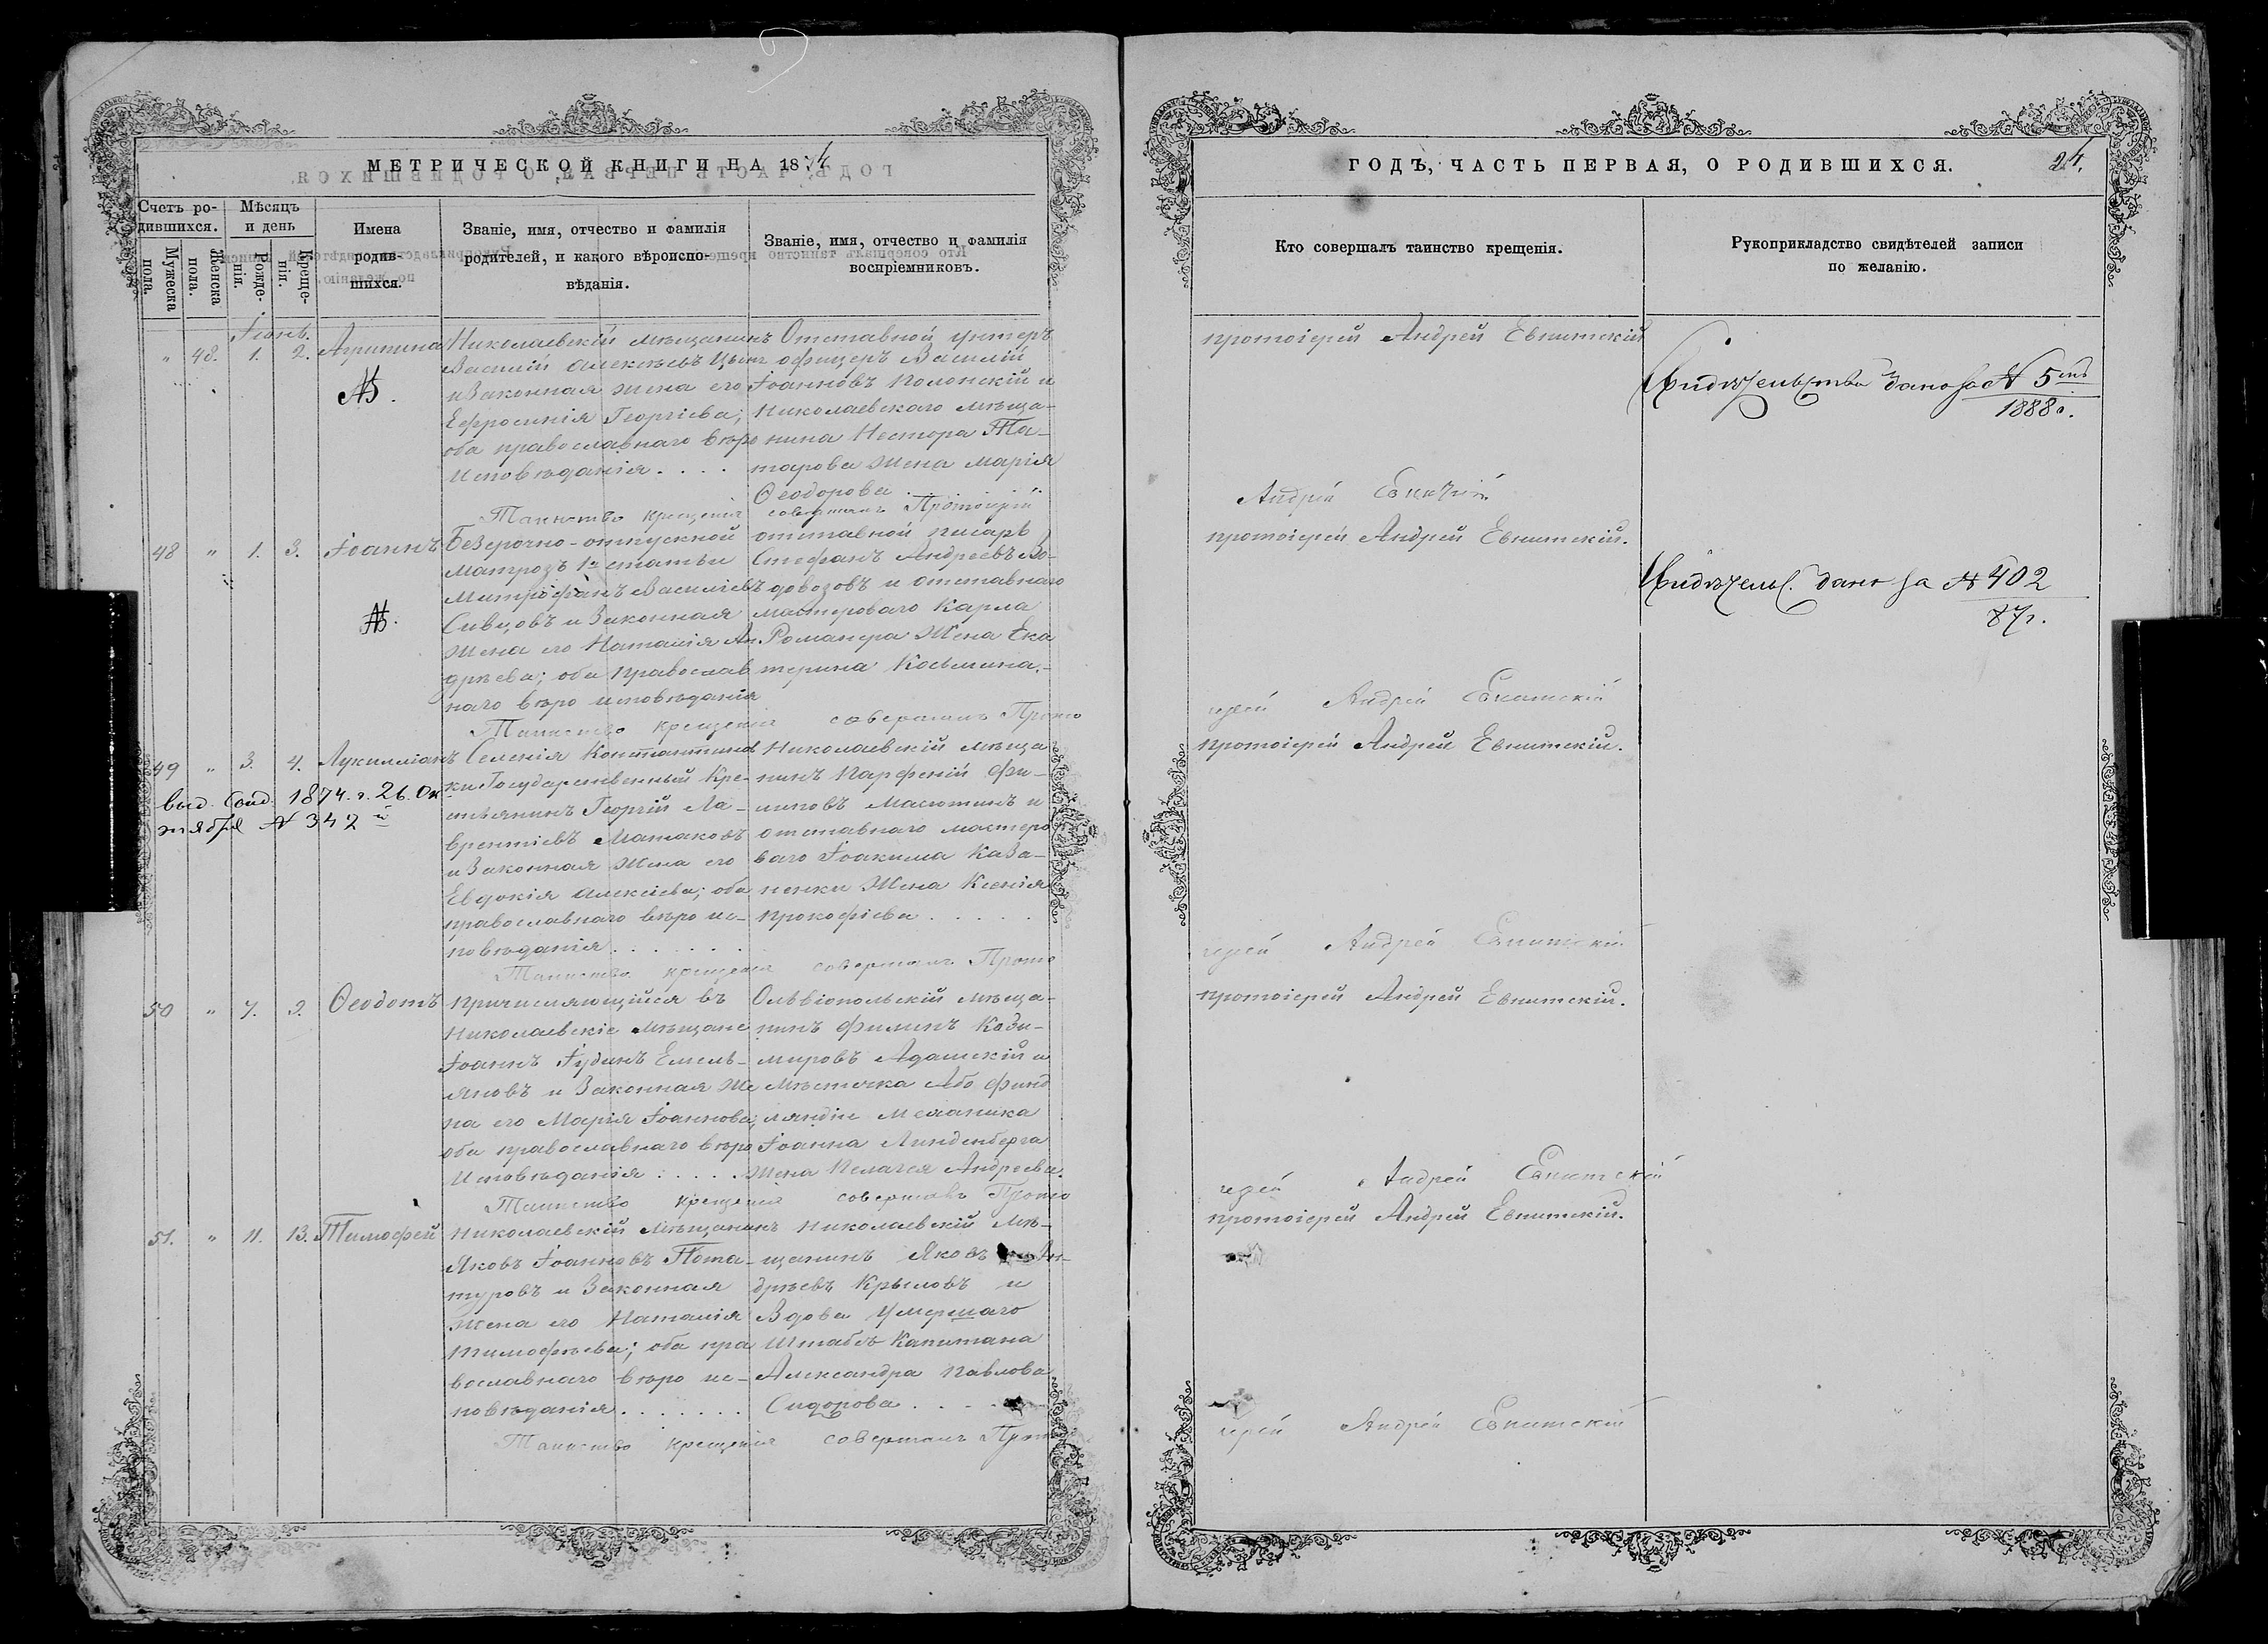 МЕТРИЧЕСКОЙ КНИГИ НА 1874
Счетъ ро-
дившихся.
Мужеска
пола.
Женска
пола.
Мѣсяцъ
и день
Рожде-
нія.
Креще-
нія.
Имена
родив-
шихся.
Званіе, имя, отчество и фамилія
родителей, и какого вѣроиспо-
вѣданія.
Званіе, имя, отчество и фамилія
воспріемниковъ.
Іюнь.
" 48. 1. 2. Агрипина
Николаевскій мѣщанинъ
Василій Алексѣевъ
и законная жена его
Ефросинія Георгіева;
оба православнаго вѣро
исповѣданія . . . .
Отставной унтеръ
офицеръ Василій
Іоанновъ Полонскій и
Николаевскаго мѣща-
нина Нестора Та-
тарова жена Марія
Ѳеодорова
Таинство крещенія совершилъ Протоіерей
48 " 1. 3. Іоаннъ
Безсрочно-отпускной
матрозъ 1й статьи
Митрофанъ Васильевъ
Сивцовъ и законная
жена его Наталія Ан
дрѣева; оба православ
наго вѣро исповѣданія
отставной писарь
Стефанъ Андреевъ Во-
довозовъ и отставнаго
мастероваго Карла
Романера жена Ека
терина Косьмина.
Таинство крещенія совершилъ Прото
49 " 3. 4. Лукилліанъ
выд. Свид. 1874. г. 26. Ок
тября № 342й
Селенія Константинов
ки Государственный кре-
стьянинъ Георгій Ла-
врентіевъ Матаковъ
и законная жена его
Евдокія Алексіева; оба
православнаго вѣро ис-
повѣданія . . . . . .
Николаевскій мѣща
нинъ Парфеній Фи-
липовъ Масютинъ и
отставнаго мастеро
ваго Іоакима Каза-
ненки жена Ксенія
Прокофіева . . . . .
Таинство крещенія совершилъ Прото
50 " 7. 9. Ѳеодотъ
Причисляющійся въ
Николаевскіе мѣщане
Іоаннъ Іудинъ Емель-
яновъ и законная же
на его Марія Іоаннова;
оба православнаго вѣро
исповѣданія . . . .
Ольвіопольскій мѣща-
нинъ Филипъ Кази-
мировъ Адамскій и
мѣстечка Або Финд
ляндіи механика
Іоанна Линденберга
жена Пелагея Андреева.
Таинство крещенія совершилъ Прото
51. " 11. 13. Тимофей
Николаевскій мѣщанинъ
Яковъ Іоанновъ Пота-
туровъ и законная
жена его Наталія
Тимофѣева; оба пра
вославнаго вѣро ис-
повѣданія . . . . . . .
Николаевскій мѣ-
щанинъ Яковъ Ан-
дрѣевъ Крыловъ и
вдова умершаго
Штабсъ Капитана
Александра Павлова
Сидорова . . . .
Таинство крещенія совершилъ Прото
ГОДЪ, ЧАСТЬ ПЕРВАЯ, О РОДИВШИХСЯ.
24.
Кто совершалъ таинство крещенія.
Рукоприкладство свидѣтелей записи
по желанію.
протоіерей Андрей Евнитскій
Свидѣтельство дано за № 5мъ
1888 г.
Андрей Евнитскій
протоіерей Андрей Евнитскій.
Свидѣтельс. дано за № 402
87 г.
іерей Андрей Евнитскій
протоіерей Андрей Евнитскій.
іерей Андрей Евнитскій
протоіерей Андрей Евнитскій.
іерей Андрей Евнитскій
протоіерей Андрей Евнитскій.
іерей Андрей Евнитскій